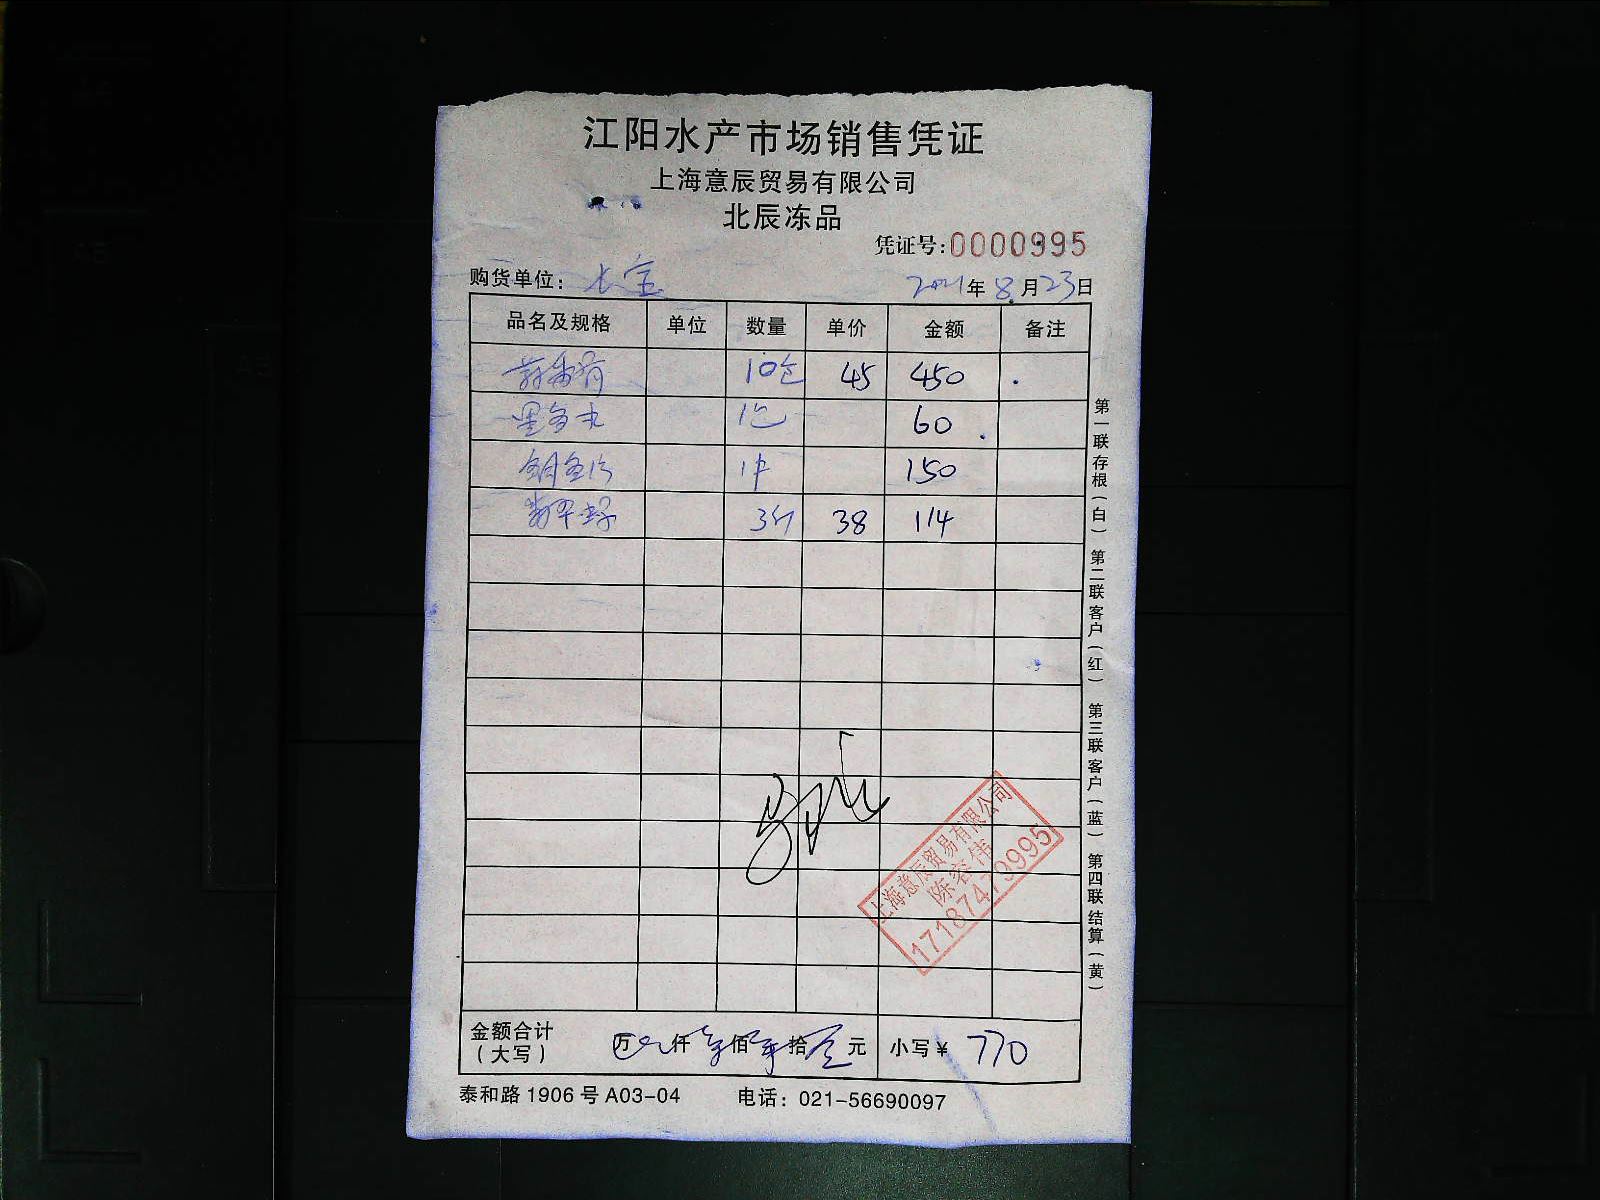 江阳水产市场销售凭证
上海意辰贸易有限公司
北辰冻品
凭证号:0000995
购货单位: 2021年8月23日
品名及规格 单位 数量 单价 金额 备注
10包 45 450
1包 60
1件 150
3 38 114
金额合计(大写) 万 仟 佰 拾 元 小写¥ 770
泰和路1906号A03-04 电话:021-56690097
第一联存根(白) 第二联客户(红) 第三联客户(蓝) 第四联结算(黄)
上海意辰贸易有限公司
陈容伟
17187479995